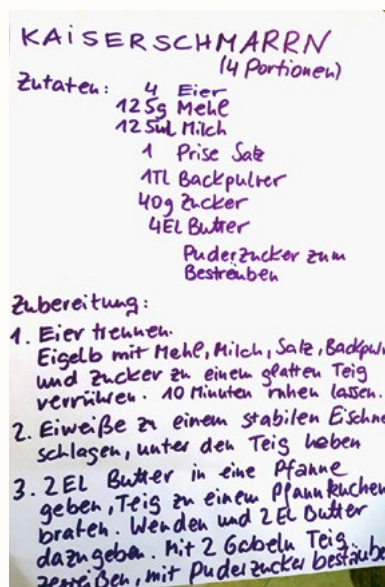 KAISERSCHMARRN
(4 Portionen)
Zutaten: 4 Eier
125g Mehl
125ml Milch
1 Prise Salz
1TL Backpulver
40g Zucker
4EL Butter
Puderzucker zum
Bestreuben
Zubereitung:
1. Eier trennen.
Eigelb mit Mehl, Milch, Salz, Backpulv
und Zucker zu einem glatten Teig
verrühren. 10 Minuten ruhen lassen.
2. Eiweiße zu einem stabilen Eischne
schlagen, unter den Teig heben
3. 2EL Butter in eine Pfanne
geben, Teig zu einem Pfannkuchen
braten. Wenden und 2EL Butter
dazugeben. Mit 2 Gabeln Teig
zerreißen, mit Puderzucker bestäube